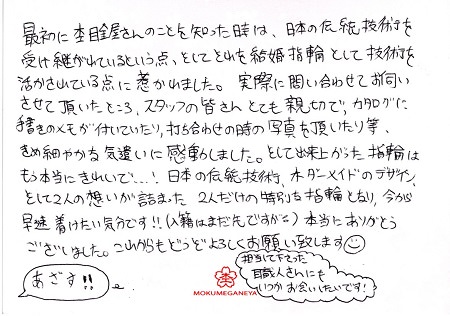 最初に杢目金屋さんのことを知った時は、日本の伝統技術を
受け継がれているという点、そしてそれを結婚指輪として技術を
活かされている点に惹かれました。実際に問い合わせてお伺い
させて頂いたところ、スタッフの皆さんとても親切で、カタログに
手書きのメモが付いていたり、打ち合わせの時の写真を頂いたり等、
きめ細やかな気遣いに感動しました。そして出来上がった指輪は
もう本当にきれいで…!日本の伝統技術、オーダーメイドのデザイン、
そして2人の想いが詰まった2人だけの特別な指輪となり、今から
早速着けたい気分です!!(入籍はまだ先ですが)本当にありがとう
ございました。これからもどうぞよろしくお願い致します☺
あざす!!
担当して下さった
職人さんにも
いつかお会いしたいです!
MOKUMEGANEYA